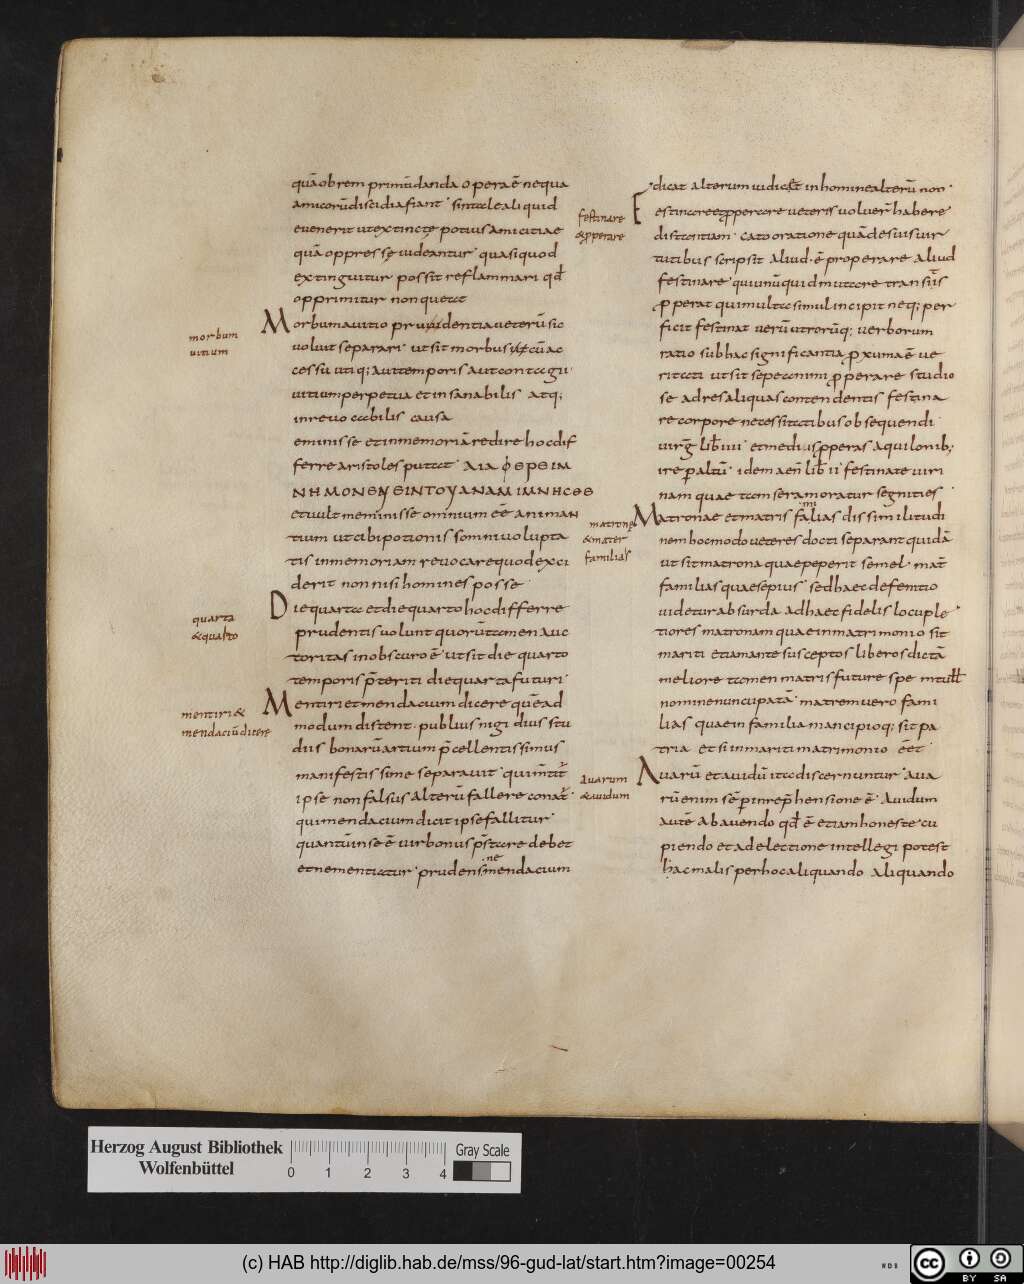 quãobrem primũdanda operaẽ nequa
amicorũdiscidiafiant sintaleali quid
evenerit utextincte potius amicitiae
quã oppresse uideantur quasi quod
extinguitur possit reflammari qđ
opprimitur non queat
morbum
uitium
Morbumauitio prudentiaueterũ sic
uoluit separari ut sit morbus cũac
cessu uti q; aut temporis aut contagii
uitium perpetua et insanabilis atq;
inreuocabilis causa
eminisse et inmemoriã redire hoc dif
ferre aristoles putat ΔΙΑ ϕΕΡΕΙΜ
ΝΗΜΟΝΕΥΕΙΝΤΟΥΑΝΑΜΙΜΝΗϹΕΘ
et uult meminisse omnium eẽ animan
tium ut cibi potionis somni uolupta
tis in memoriam reuocarequodexci
derit non nisi homines posse
quarta
&quarto
Die quarta et die quarto hoc differre
prudentis uolunt quorũ tamen auc
toritas in obscuro ẽ ut sit die quarto
temporis p̃teriti die quarta futuri
mentiri &
mendaciũ dicere
Mentiri et mendacium dicere quẽad
modum distent publius nigidius stu
diis bonarũ artium p̃cellentissimus
manifestissime separauit qui m̃tit̃
ipse non falsus alterũ fallere conat̃
qui mendacium dicit ipse fallitur
quantũ in se ẽ uir bonus p̃stare debet
et ne mentiatur prudens ne mendacium
dicat alterum uidicẽt in homine alterũ non
festinare
& properare
Festinare et properare ueteris uoluer̃ habere
distantiam cato oratione quã de suis uir
tutibus scripsit aliud ẽ properare aliud
festinare qui unũ quid mature transiis
properat qui multa simul incipit neq; per
ficit festinat uerũ utrorũq; uerborum
ratio sub hac significantia proxuma ẽ ue
ritati ut sit sepe animi properare studio
se ad res aliquas contendentis festina
re corpore necessitatibus obsequendi
uirg̃ lib̃ iiii et medius properas aquilonib;
ire per altũ idem aeñ lib̃ ii festinate uiri
nam quae tam sera moratur segnities
matrone
& mater
familias
Matronae et matris familias dissimilitudi
nem hoc modo ueteres docti separant quidã
ut sit matrona quae peperit semel mat̃
familias quae sepius sed haec defenitio
uidetur absurda ad haec fidelis locuple
tiores matronam quae in matrimonio sit
mariti etiam ante susceptos liberos dictã
meliore tamen matris future spe
nomine nuncupatã matrem uero fami
lias quae in familia mancipioq; sit pa
tria et si in mariti matrimonio eẽt
Auarum
& auidum
Auarũ et auidũ ita discernuntur aua
rũ enim sẽper in reprehensione ẽ auidum
autẽ ab auendo qđ ẽ etiam honeste cu
piendo et ad electione intellegi potest
hac malis per hoc aliquando aliquando
Herzog August Bibliothek
Wolfenbüttel
0 1 2 3 4
Gray Scale
(c) HAB http://diglib.hab.de/mss/96-gud-lat/start.htm?image=00254
WDB
CC BY SA